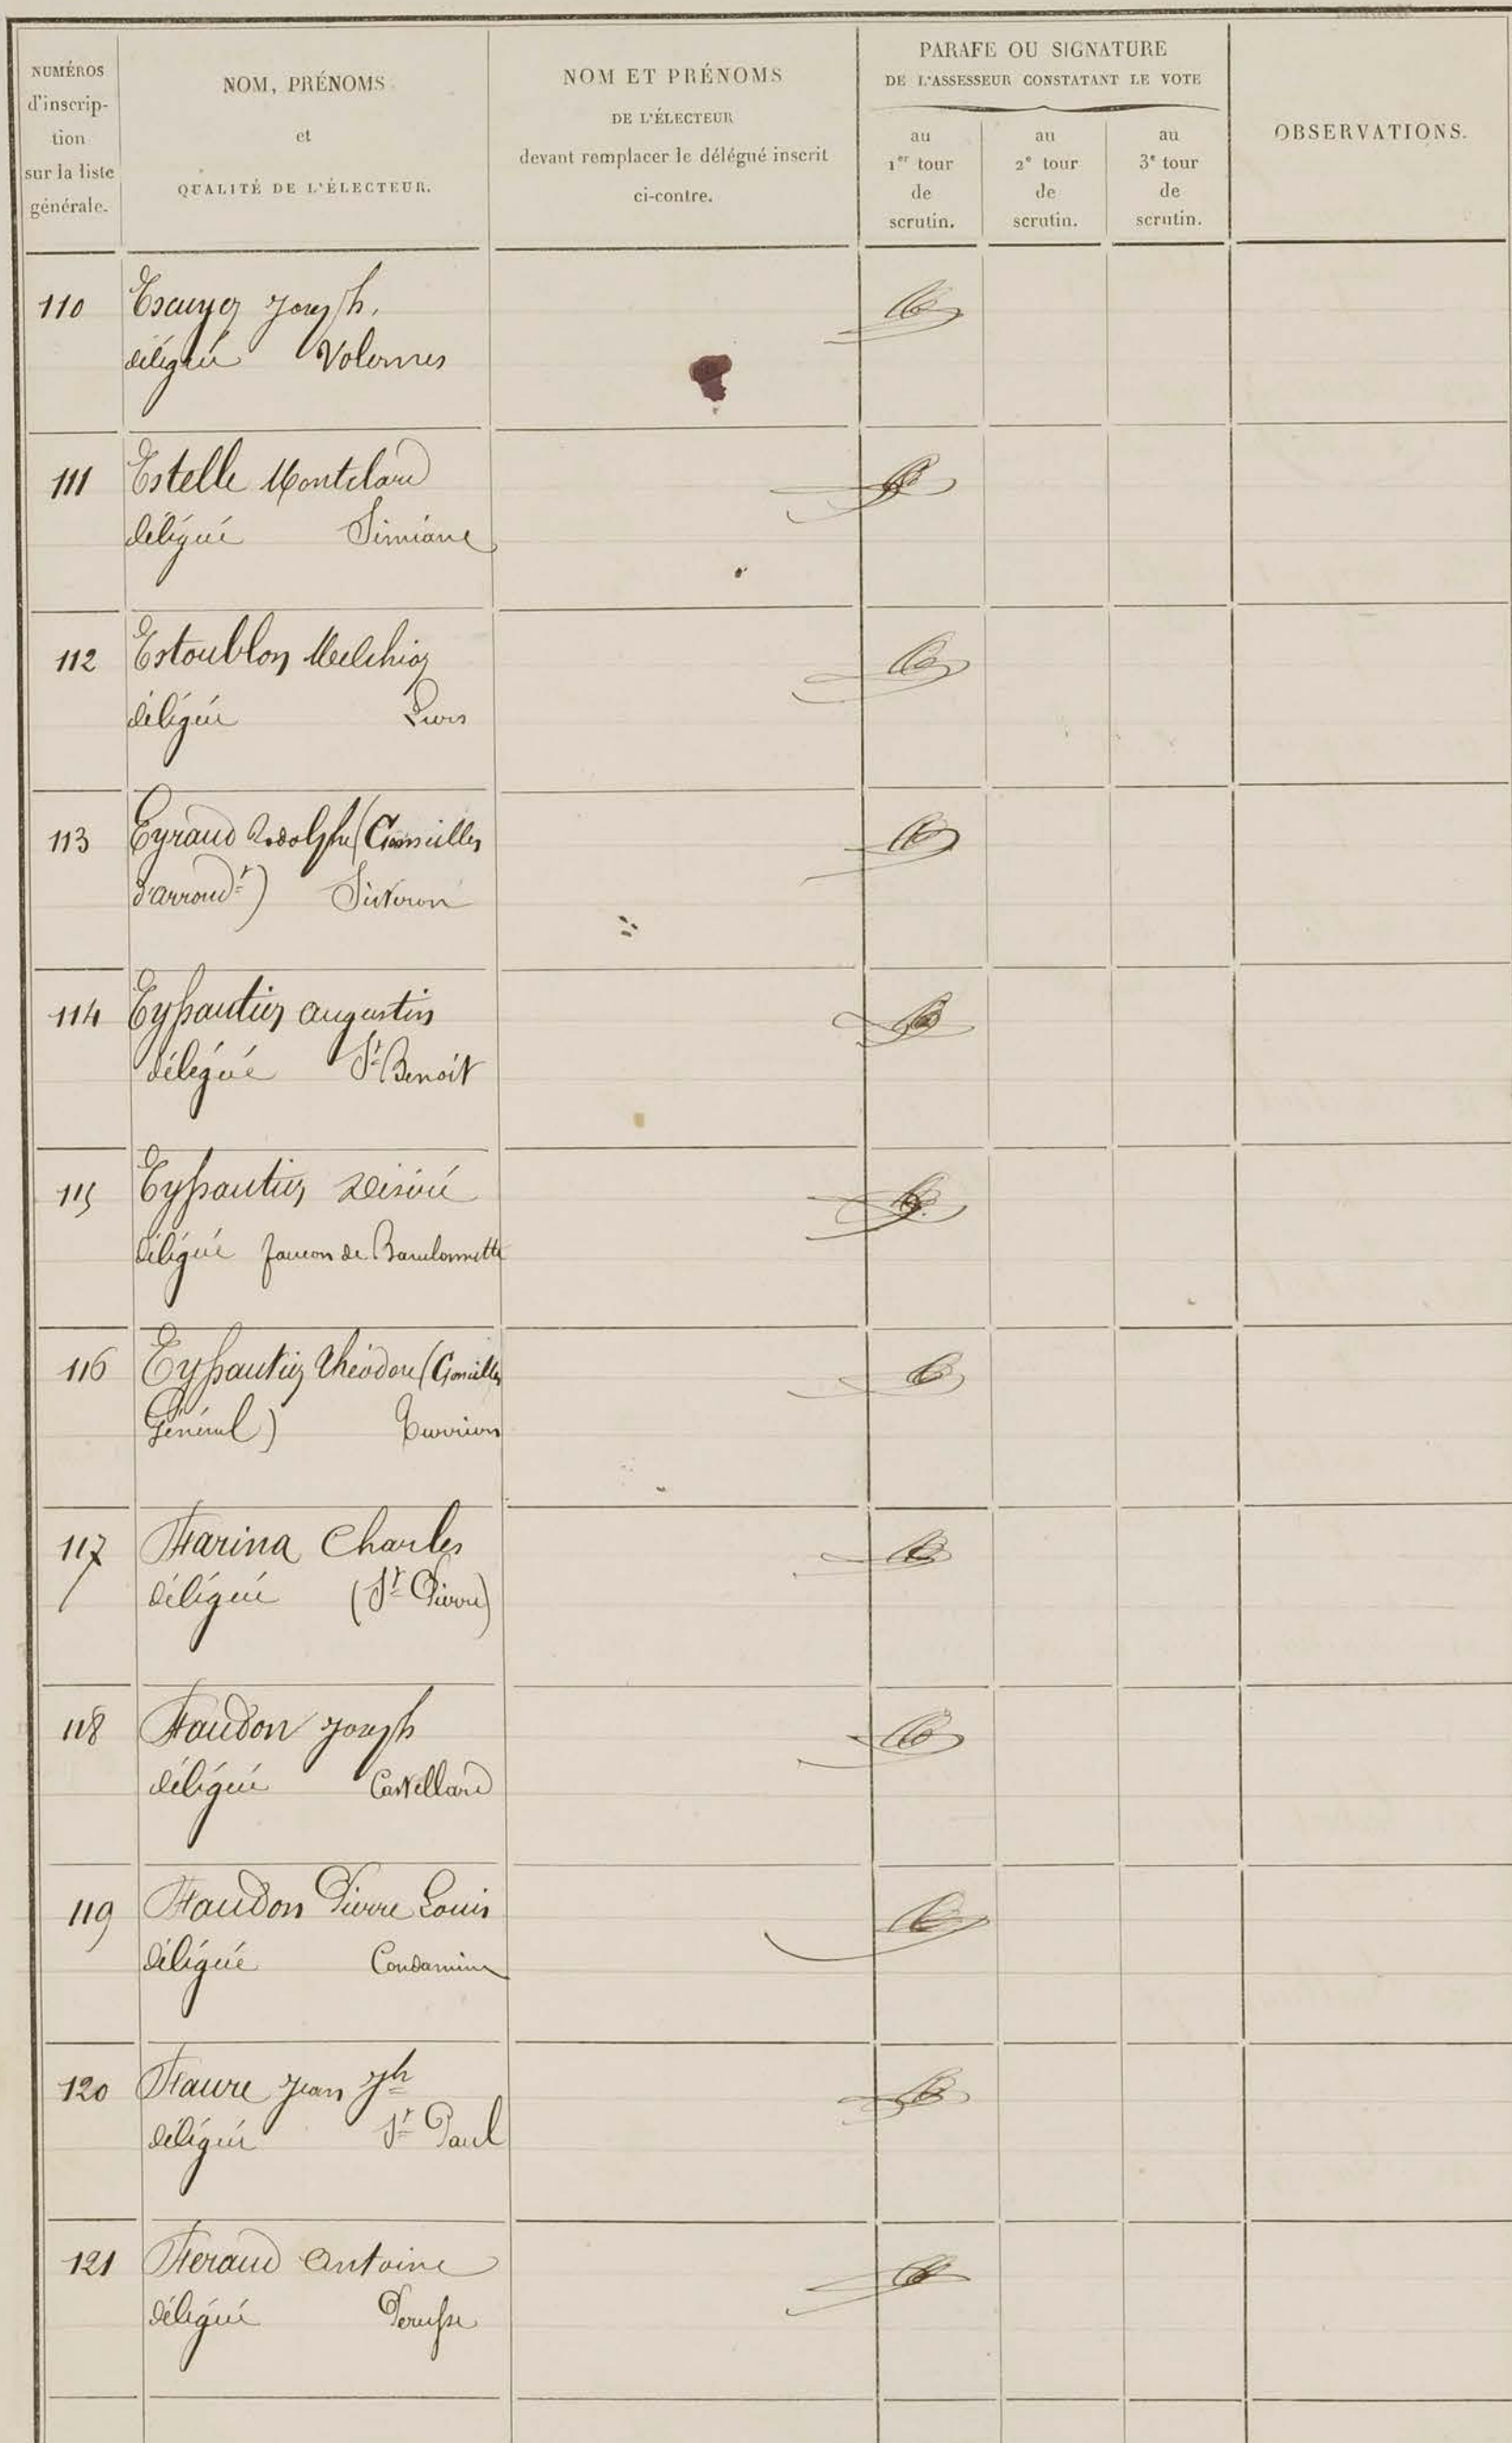 NUMÉROS
d'inscrip-
tion
sur la liste
générale.
NOM, PRÉNOMS
et
QUALITÉ DE L'ÉLECTEUR.
NOM ET PRÉNOMS
DE L'ÉLECTEUR
devant remplacer le délégué inscrit
ci-contre.
PARAFE OU SIGNATURE
DE L'ASSESSEUR CONSTATANT LE VOTE
au
1er tour
de
scrutin.
au
2e tour
de
scrutin.
au
3e tour
de
scrutin.
OBSERVATIONS.
110 Escuyer Joseph,
délégué Volonnes
111 Estelle Montclard
délégué Simiane
112 Estoublon Melchior
délégué Lurs
113 Eyraud Rodolphe (Conseiller
d'arrondt) Sisteron
114 Eyssautier Augustin
délégué St Benoît
115 Eyssautier Désiré
délégué faucon de Barcelonnette
116 Eyssautier Théodore (Conseiller
Général) Turriers
117 Farina Charles
délégué (St Pierre)
118 Faudon Joseph
délégué Castellard
119 Faudon Pierre Louis
délégué Condamine
120 Faure Jean Jh
délégué St Paul
121 Feraud Antoine
délégué Perusse